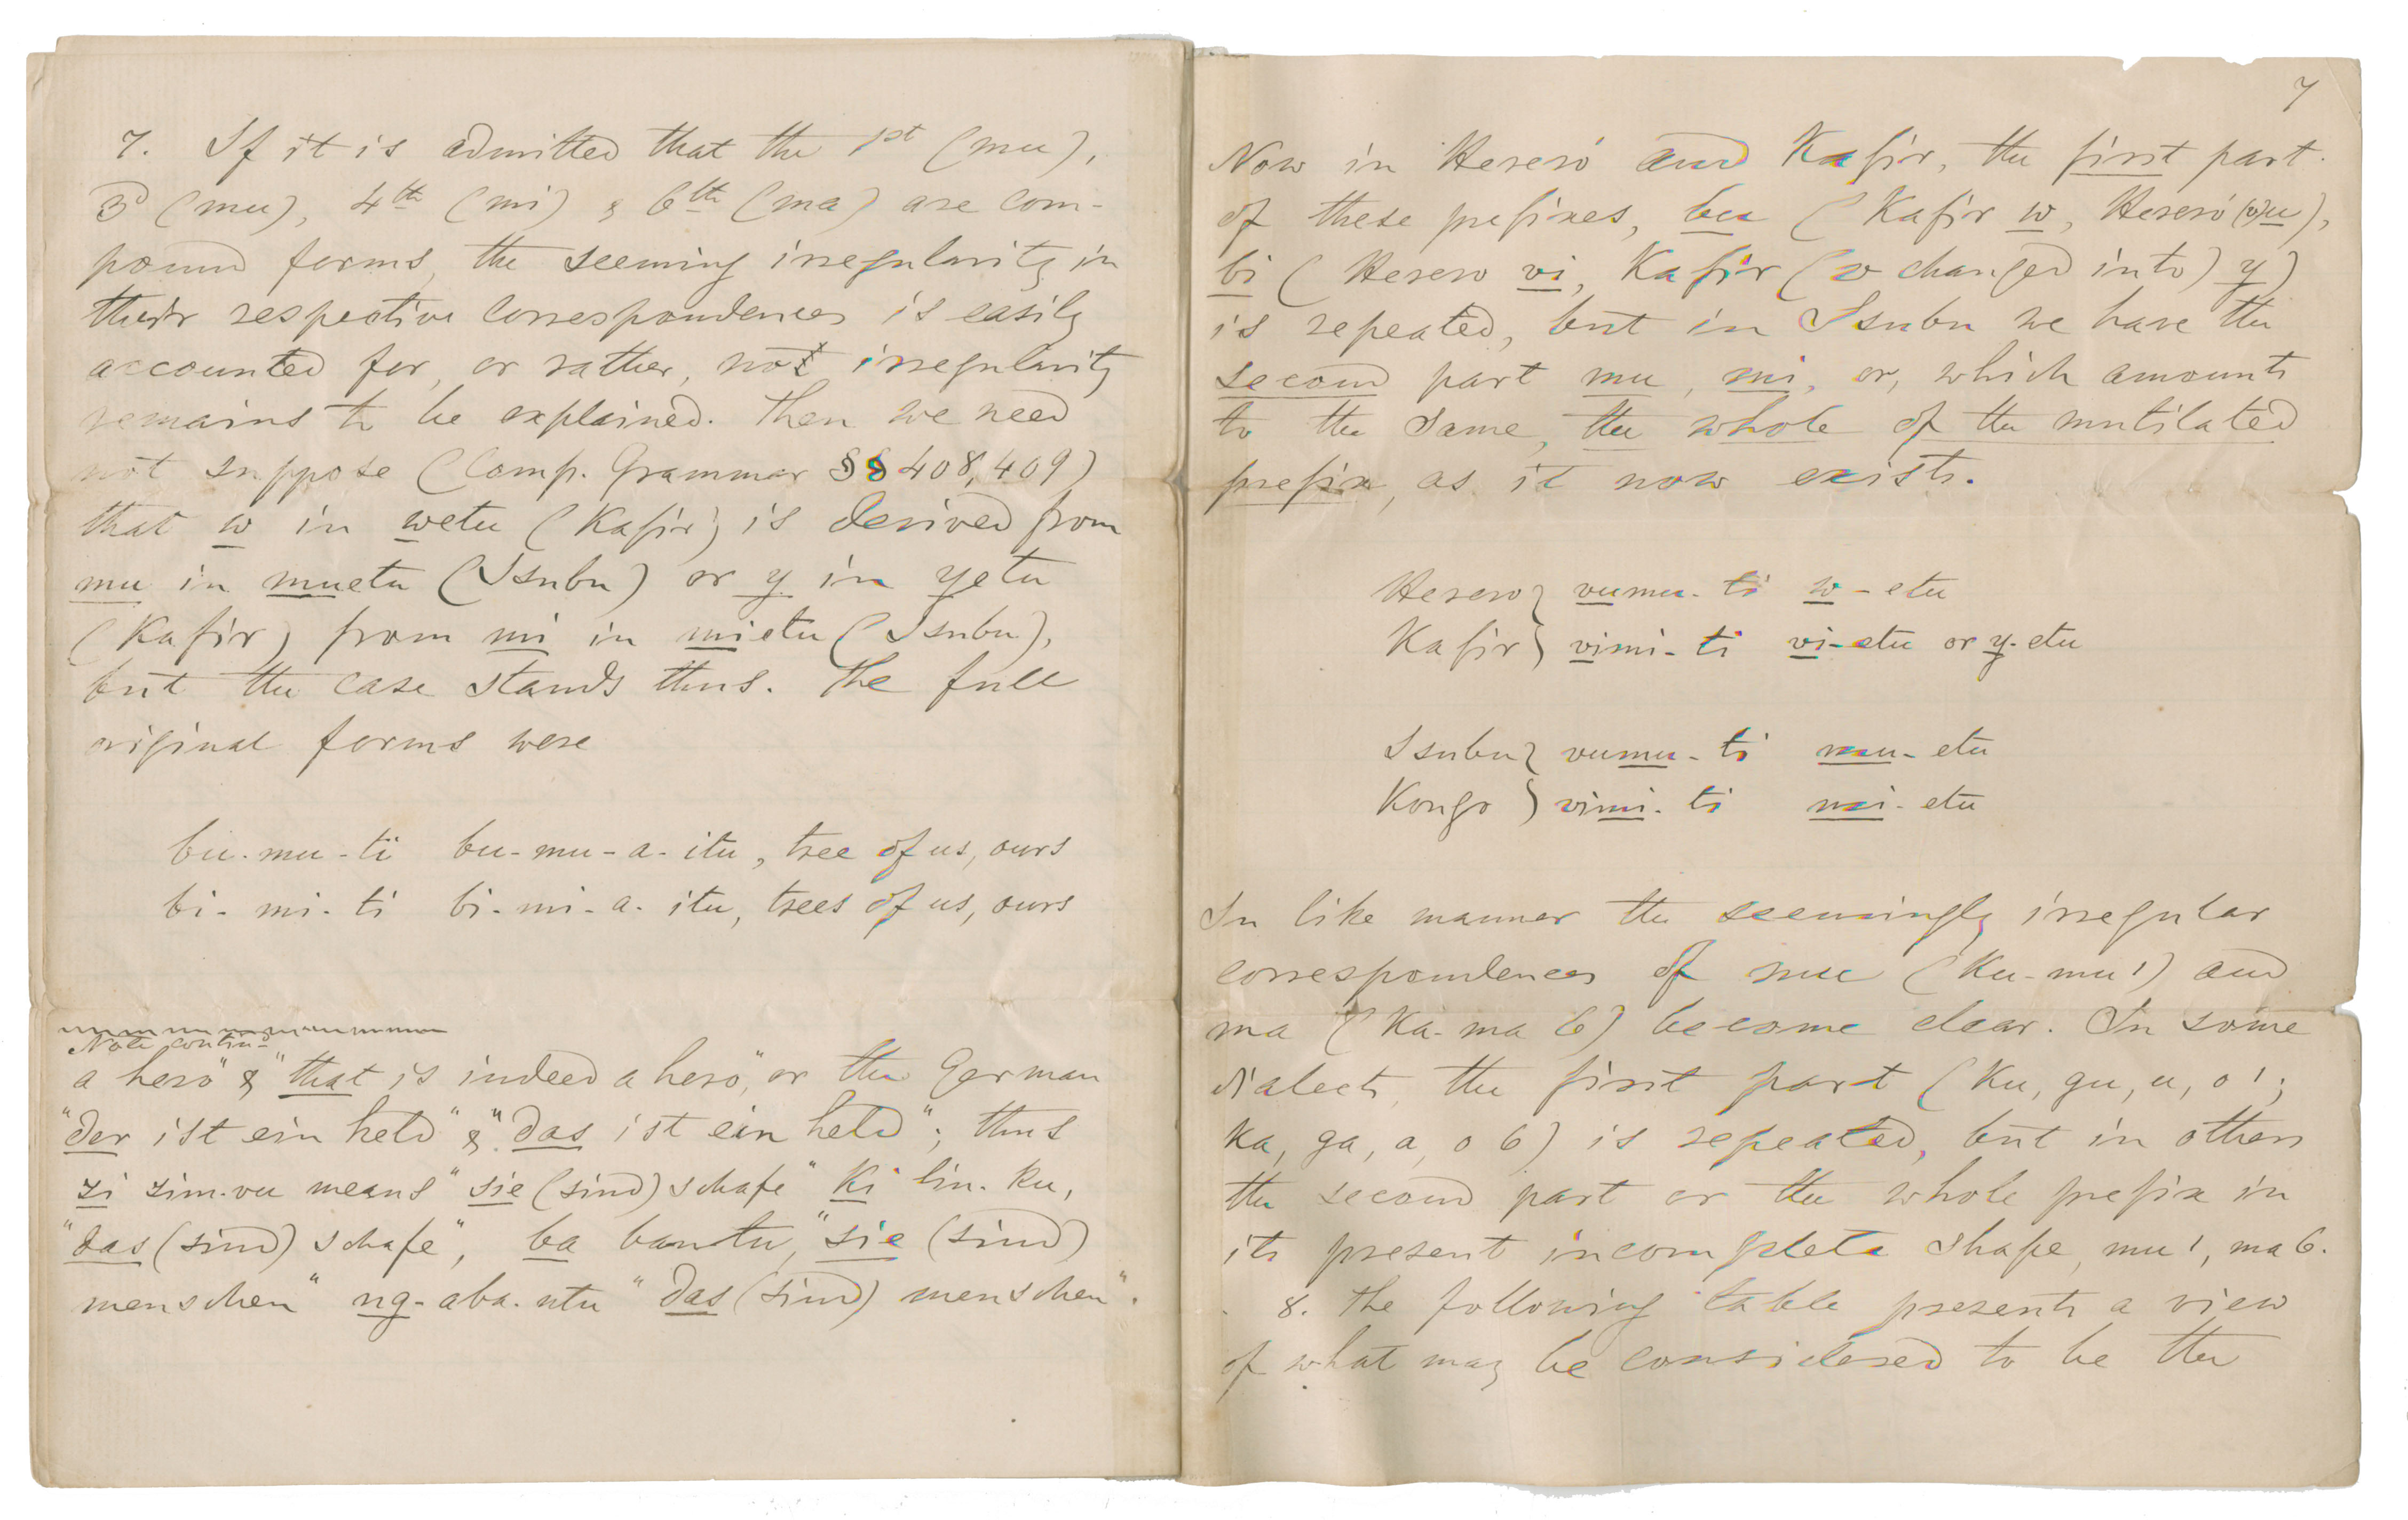 7. If it is admitted that the 1st (mu),
3d (mu), 4th (mi) & 6th (ma) are com-
pound forms, the seeming irregularity in
their respective correspondences is easily
accounted for, or rather, not irregularity
remains to be explained. Then we need
not suppose (Comp. Grammar §§ 408, 409)
that w in wetu (Kafir) is derived from
mu in muetu (Isubu) or y in yetu
(Kafir) from mi in mietu (Isubu),
but the case stands thus. The full
original forms were
bu-mu-ti bu-mu-a-itu, tree of us, ours
bi-mi-ti bi-mi-a-itu, trees of us, ours
Note contin-d
a hero" & "that is indeed a hero", or the German
"der ist ein held" & "das ist ein held"; thus
zi zim-vu means "sie (sind) schafe" ki lin-ku,
"das (sind) schafe", ba bantu, "sie (sind)
menschen" ng-aba-ntu "das (sind) menschen".
7
Now in Hereró and Kafir, the first part
of these prefixes, bu (Kafir w, Hereró (o)u),
bi (Herero vi, Kafir (v changed into) y)
is repeated, but in Isubu we have the
second part mu, mi, or, which amounts
to the same, the whole of the mutilated
prefix, as it now exists.
Herero } vumu-ti w-etu
Kafir } vimi-ti vi-etu or y-etu
Isubu } vumu-ti mu-etu
Kongo } vimi-ti mi-etu
In like manner the seemingly irregular
correspondences of mu (Ku-mu 1) and
ma (Ka-ma 6) become clear. In some
dialects, the first part (Ku, gu, u, o 1;
Ka, ga, a, o 6) is repeated, but in others
the second part or the whole prefix in
its present incomplete shape, mu 1, ma 6.
8. The following table presents a view
of what may be considered to be the